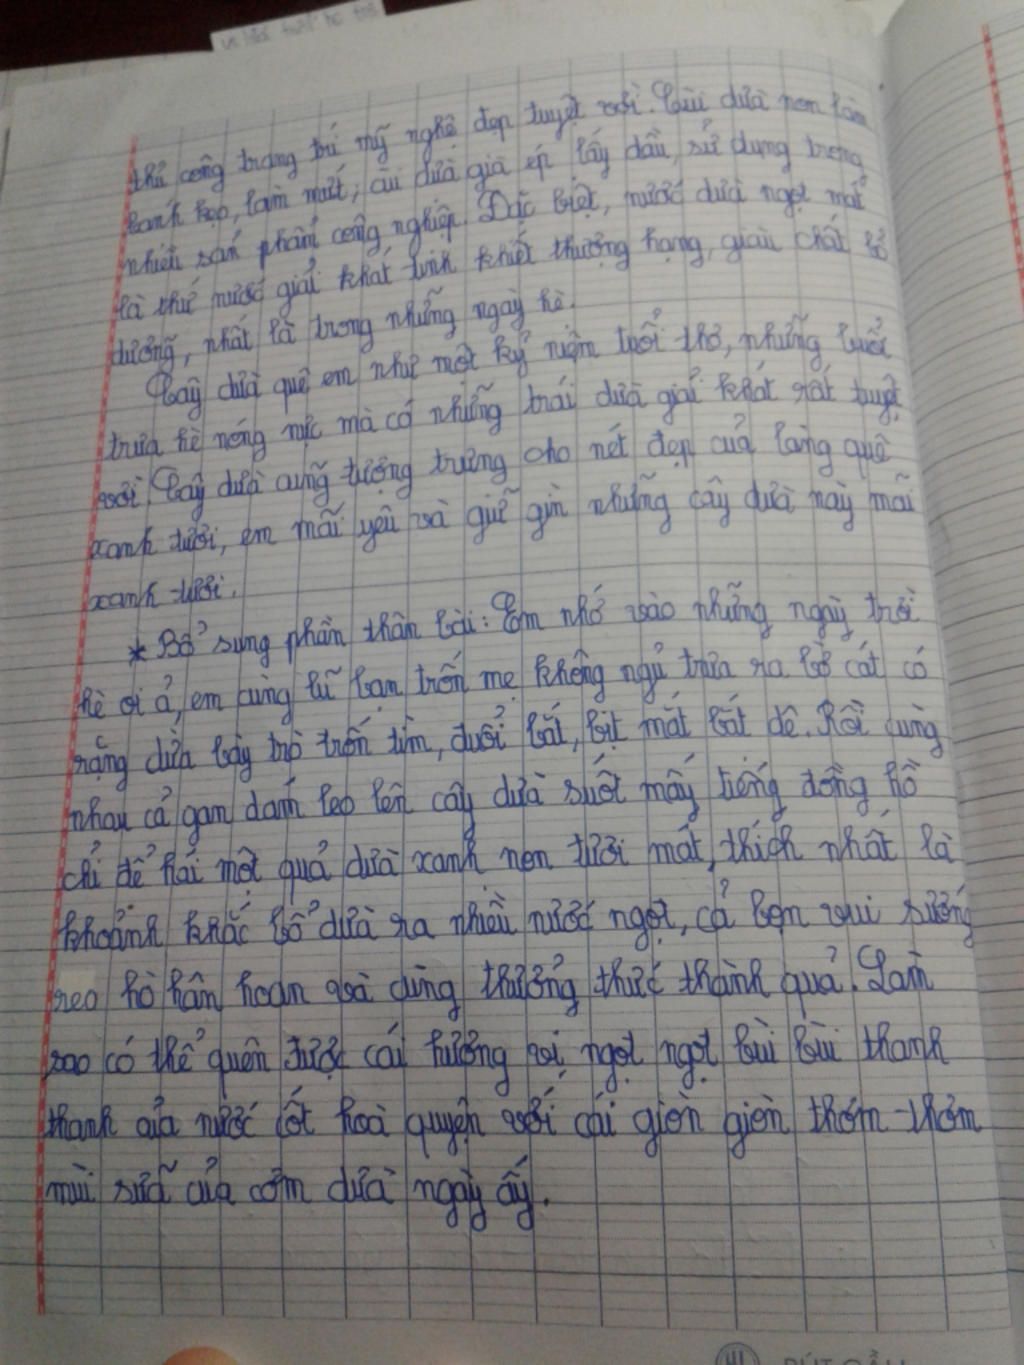 thủ công trang trí mỹ nghệ đẹp tuyệt vời. Cùi dừa non làm
banh kẹo, làm mứt, cùi dừa già ép lấy dầu, sử dụng trong
nhiều sản phẩm công nghiệp. Đặc biệt, nước dừa ngọt mát
là thứ nước giải khát tinh khiết thượng hạng, giàu chất bổ
dưỡng, nhất là trong những ngày hè.
Cây dừa quê em như một kỷ niệm tuổi thơ, những buổi
trưa hè nóng nực mà có những trái dừa giải khát rất tuyệt
vời. Cây dừa cũng tượng trưng cho nét đẹp của làng quê
xanh tươi, em mãi yêu và giữ gìn những cây dừa này mãi
xanh tươi.
* Bổ sung phần thân bài: Em nhớ vào những ngày trời
hè oi ả, em cùng lũ bạn trốn mẹ không ngủ trưa ra bờ cát có
rặng dừa bày trò trốn tìm, đuổi bắt, bịt mắt bắt dê. Rồi cùng
nhau cả gan dám leo lên cây dừa suốt mấy tiếng đồng hồ
chỉ để hái một quả dừa xanh non tươi mát, thích nhất là
khoảnh khắc bổ dừa ra nhiều nước ngọt, cả bọn vui sướng
reo hò hân hoan và cùng thưởng thức thành quả. Làm
sao có thể quên được cái hương vị ngọt ngọt bùi bùi thanh
thanh của nước cốt hoà quyện với cái giòn giòn thơm thơm
mùi sữa của cơm dừa ngày ấy.
41